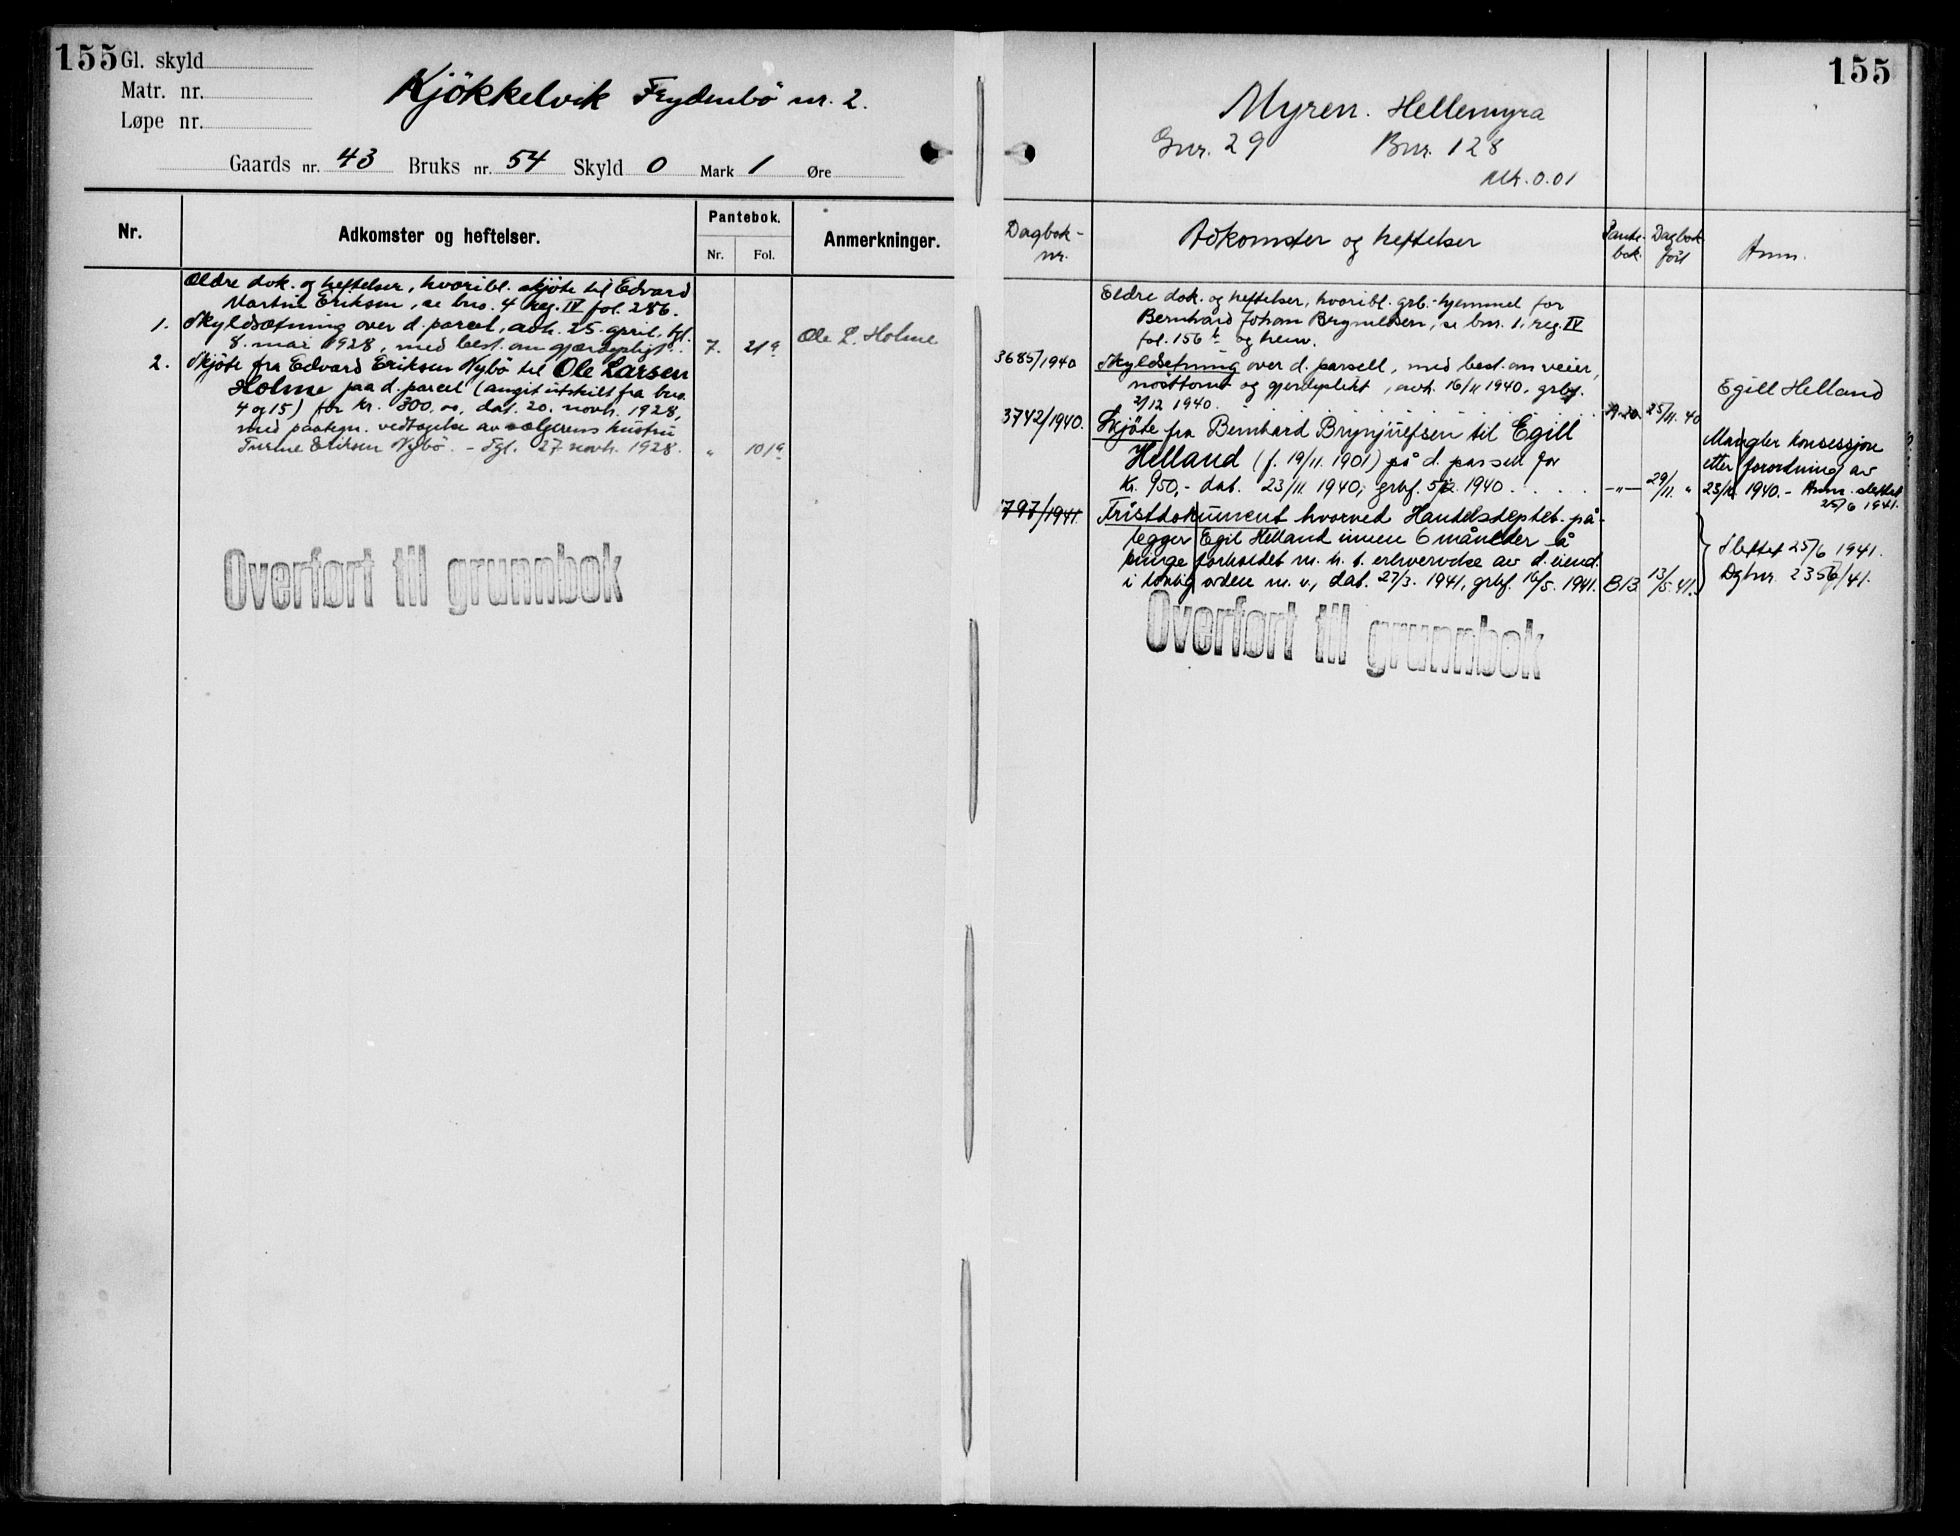 155
Gl. skyld
Matr. nr.
Løpe nr.
Kjökkelvik Frydenbö nr. 2.
Gaards nr. 43 Bruks nr. 54 Skyld 0 Mark 1 Øre
Nr. Adkomster og heftelser. Pantebok. Anmerkninger.
Nr. Fol.
Ældre dok. og heftelser, hvoribl. skjöte til Edvard
Martin Eriksen, se bno. 4 reg. IV fol. 286.
1. Skyldsætning over d. parcel, avh. 25. april, tgl.
8. mai 1928, med best. om gjærdepligt. 7. 21a Ole L. Holme
2. Skjöte fra Edvard Eriksen Nybö til Ole Larsen
Holme paa d. parcel (angit utskilt fra bno.
4 og 15) for kr. 300.00, dat. 20. novb. 1928,
med paategn. vedtagelse av sælgerens hustru
Eriksen Nybö. - Tgl. 27 novb. 1928. " 101a
Overført til grunnbok
155
Myren. Hellemyra
Gnr. 29 Bnr. 128
Mk. 0.01
Dagbok-nr. Adkomster og heftelser Pante-bok. Dagbok förl Anm.
Eldre dok. og heftelser, hvoribl. grb.-hjemmel for
Bernhard Johan Brynildsen, se bnr. 1, reg. IV
fol. 156 b og henv.
3685/1940 Skyldsetning over d. parsell, med best. om veier,
nosttomt og gjerdeplikt, avh. 16/11 1940, grbf.
2/12 1940. A 20. 25/11. 40 Egill Helland
3742/1940. Skjöte fra Bernhard Brynjulfsen til Egill
Helland (f. 19/11. 1901) på d. parsell for
kr. 950,- dat. 23/11 1940, grbf. 5/12. 1940. -"- 29/11. "
Mangler konsessjon
etter forordning av
23/12. 1940. - Anm. slettet
25/6 1941.
797/1941. Fristdokument hvorved Handelsdeptet. på-
legger Egil Helland innen 6 måneder å
bringe forholdet m. h. t. erhvervelse av d. eiend.
i lovlig orden m. v., dat. 27/3. 1941, grbf. 16/5. 1941. B 13. 13/5. 41.
Slettet 25/6 1941.
Dgbnr. 2356/41.
Overført til grunnbok